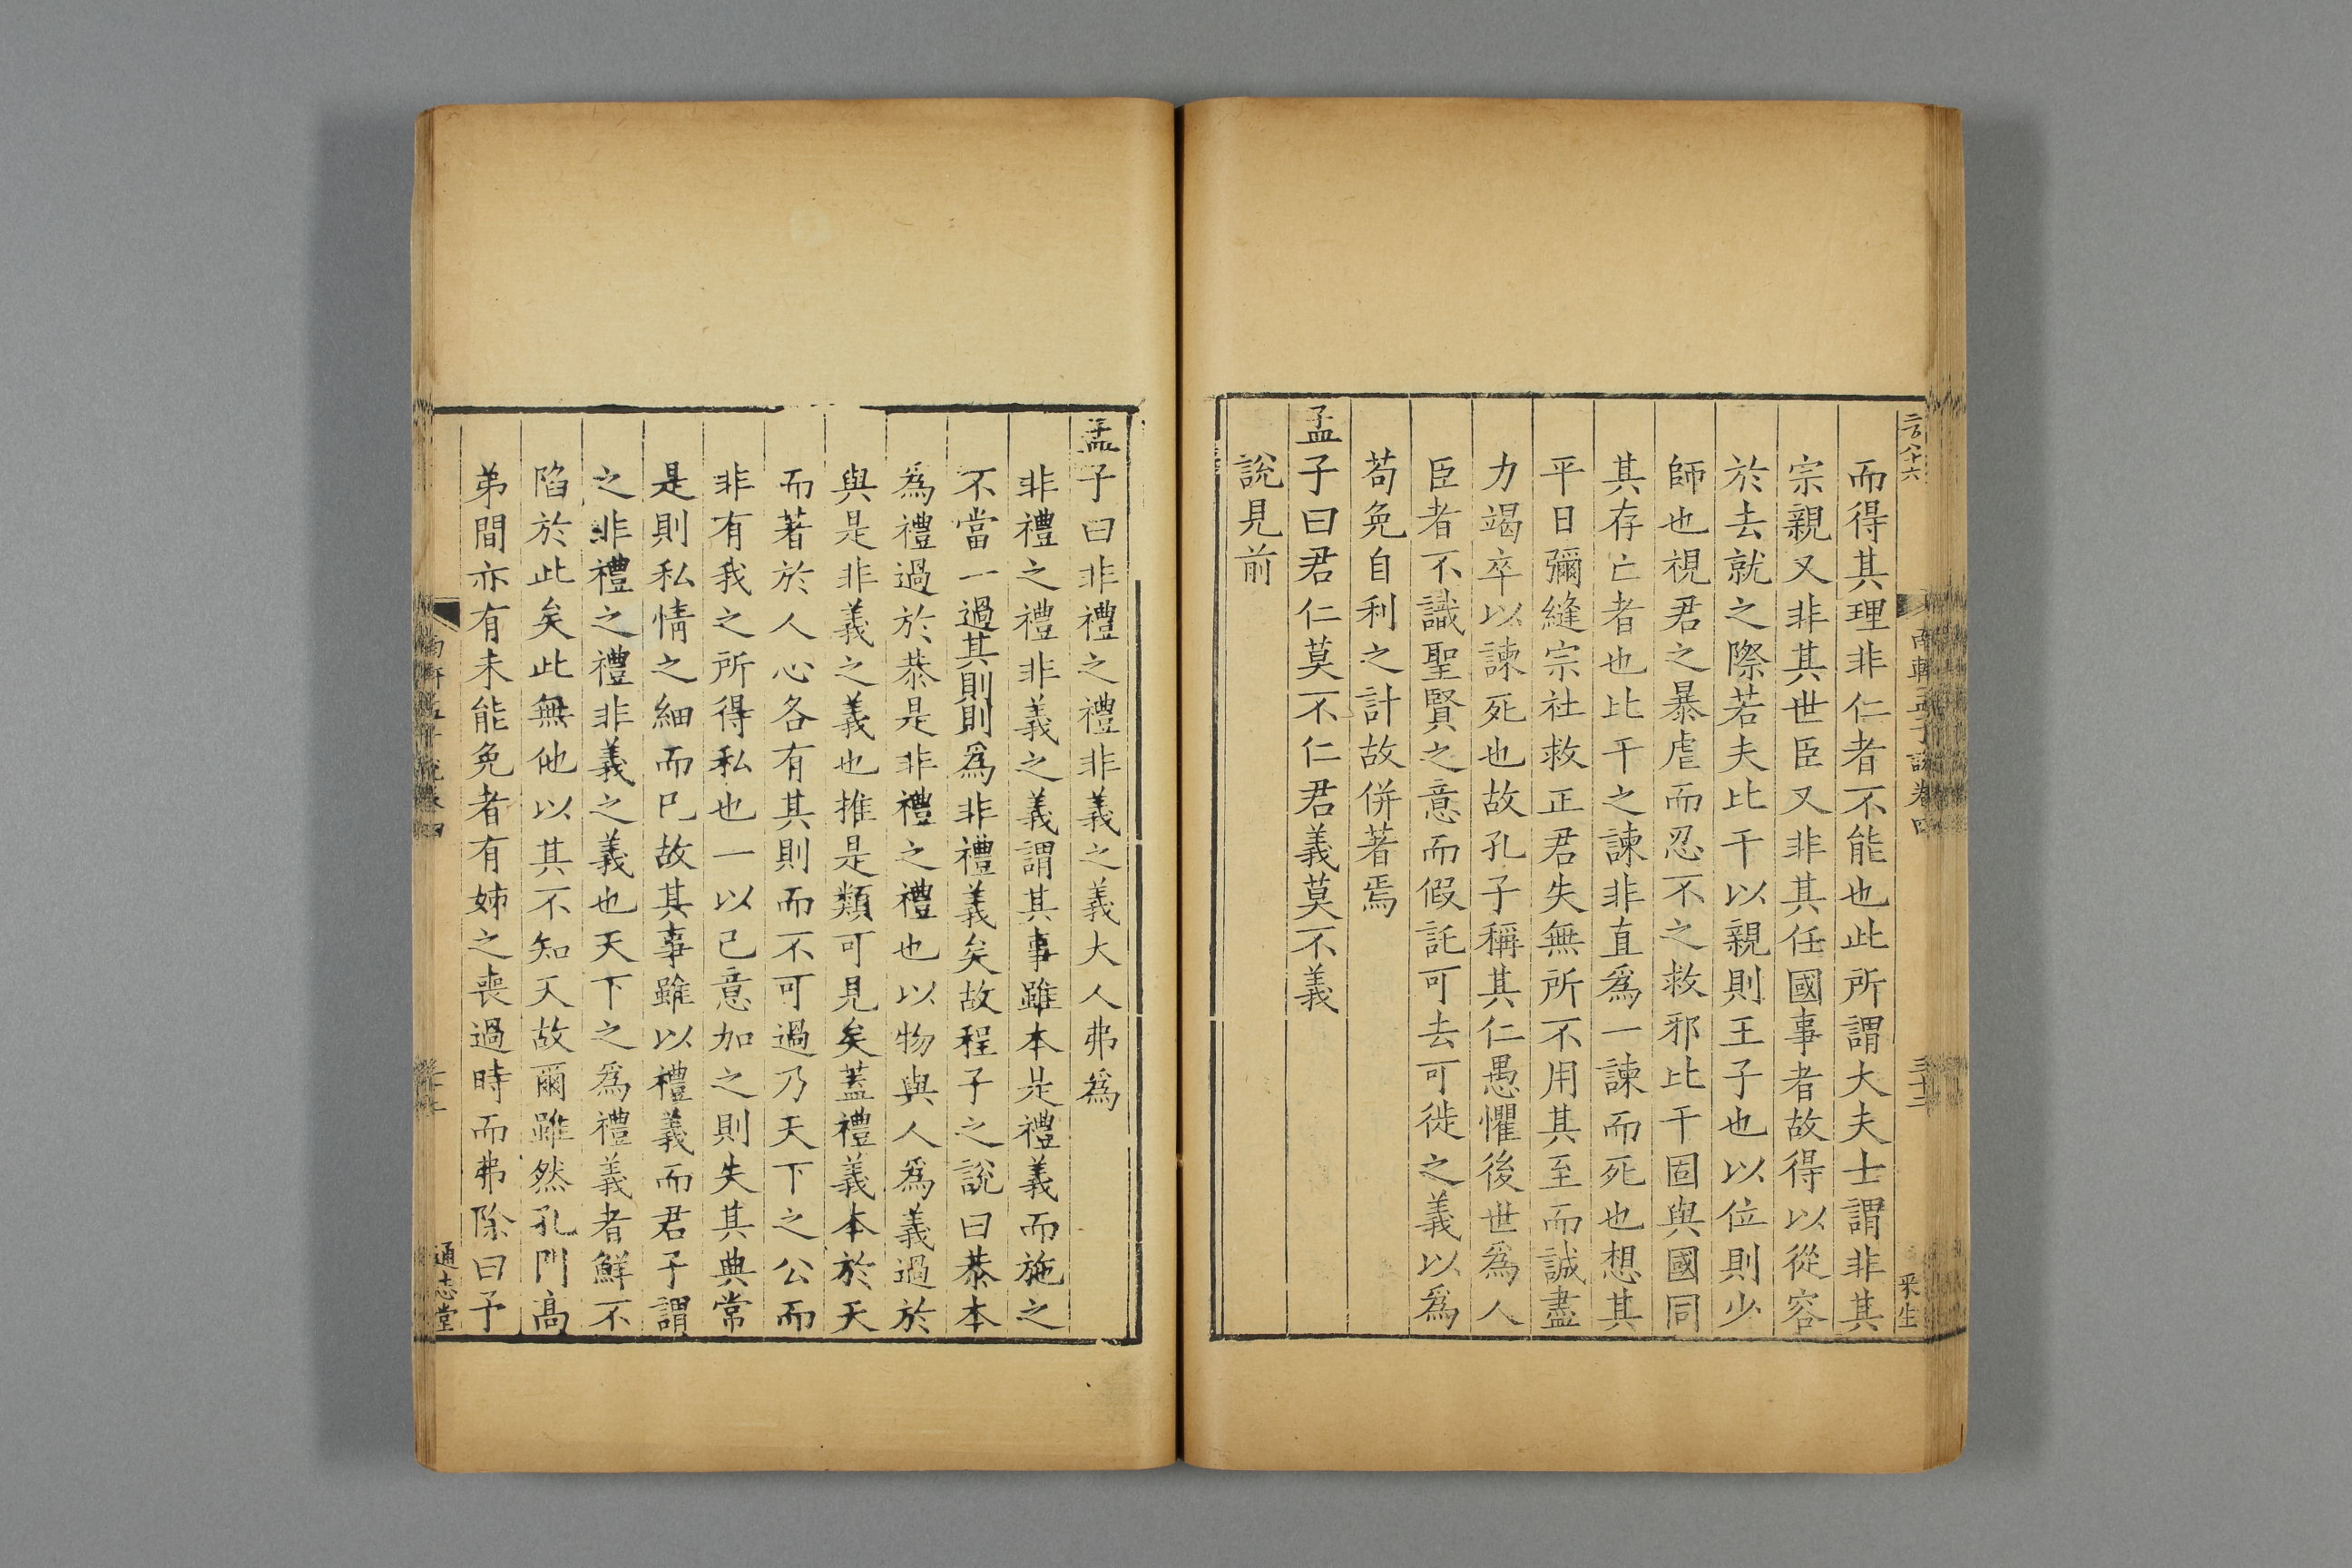 而得其理非仁者不能也此所謂大夫士謂非其
宗親又非其世臣又非其任國事者故得以從容
於去就之際若夫比干以親則王子也以位則少
師也視君之暴虐而忍不之救邪比干固與國同
其存亡者也比干之諫非直爲一諫而死也想其
平日彌縫宗社救正君失無所不用其至而誠盡
力竭卒以諫死也故孔子稱其仁愚懼後世爲人
臣者不識聖賢之意而假託可去可徙之義以爲
苟免自利之計故併著焉
孟子曰君仁莫不仁君義莫不義
說見前
孟子曰非禮之禮非義之義大人弗爲
非禮之禮非義之義謂其事雖本是禮義而施之
不當一過其則則爲非禮義矣故程子之說曰恭本
爲禮過於恭是非禮之禮也以物與人爲義過於
與是非義之義也推是類可見矣蓋禮義本於天
而著於人心各有其則而不可過乃天下之公而
非有我之所得私也一以己意加之則失其典常
是則私情之細而巳故其事雖以禮義而君子謂
之非禮之禮非義之義也天下之爲禮義者鮮不
陷於此矣此無他以其不知天故爾雖然孔門高
弟間亦有未能免者有姊之喪過時而弗除曰予
南軒孟子說卷四
三十二
通志堂